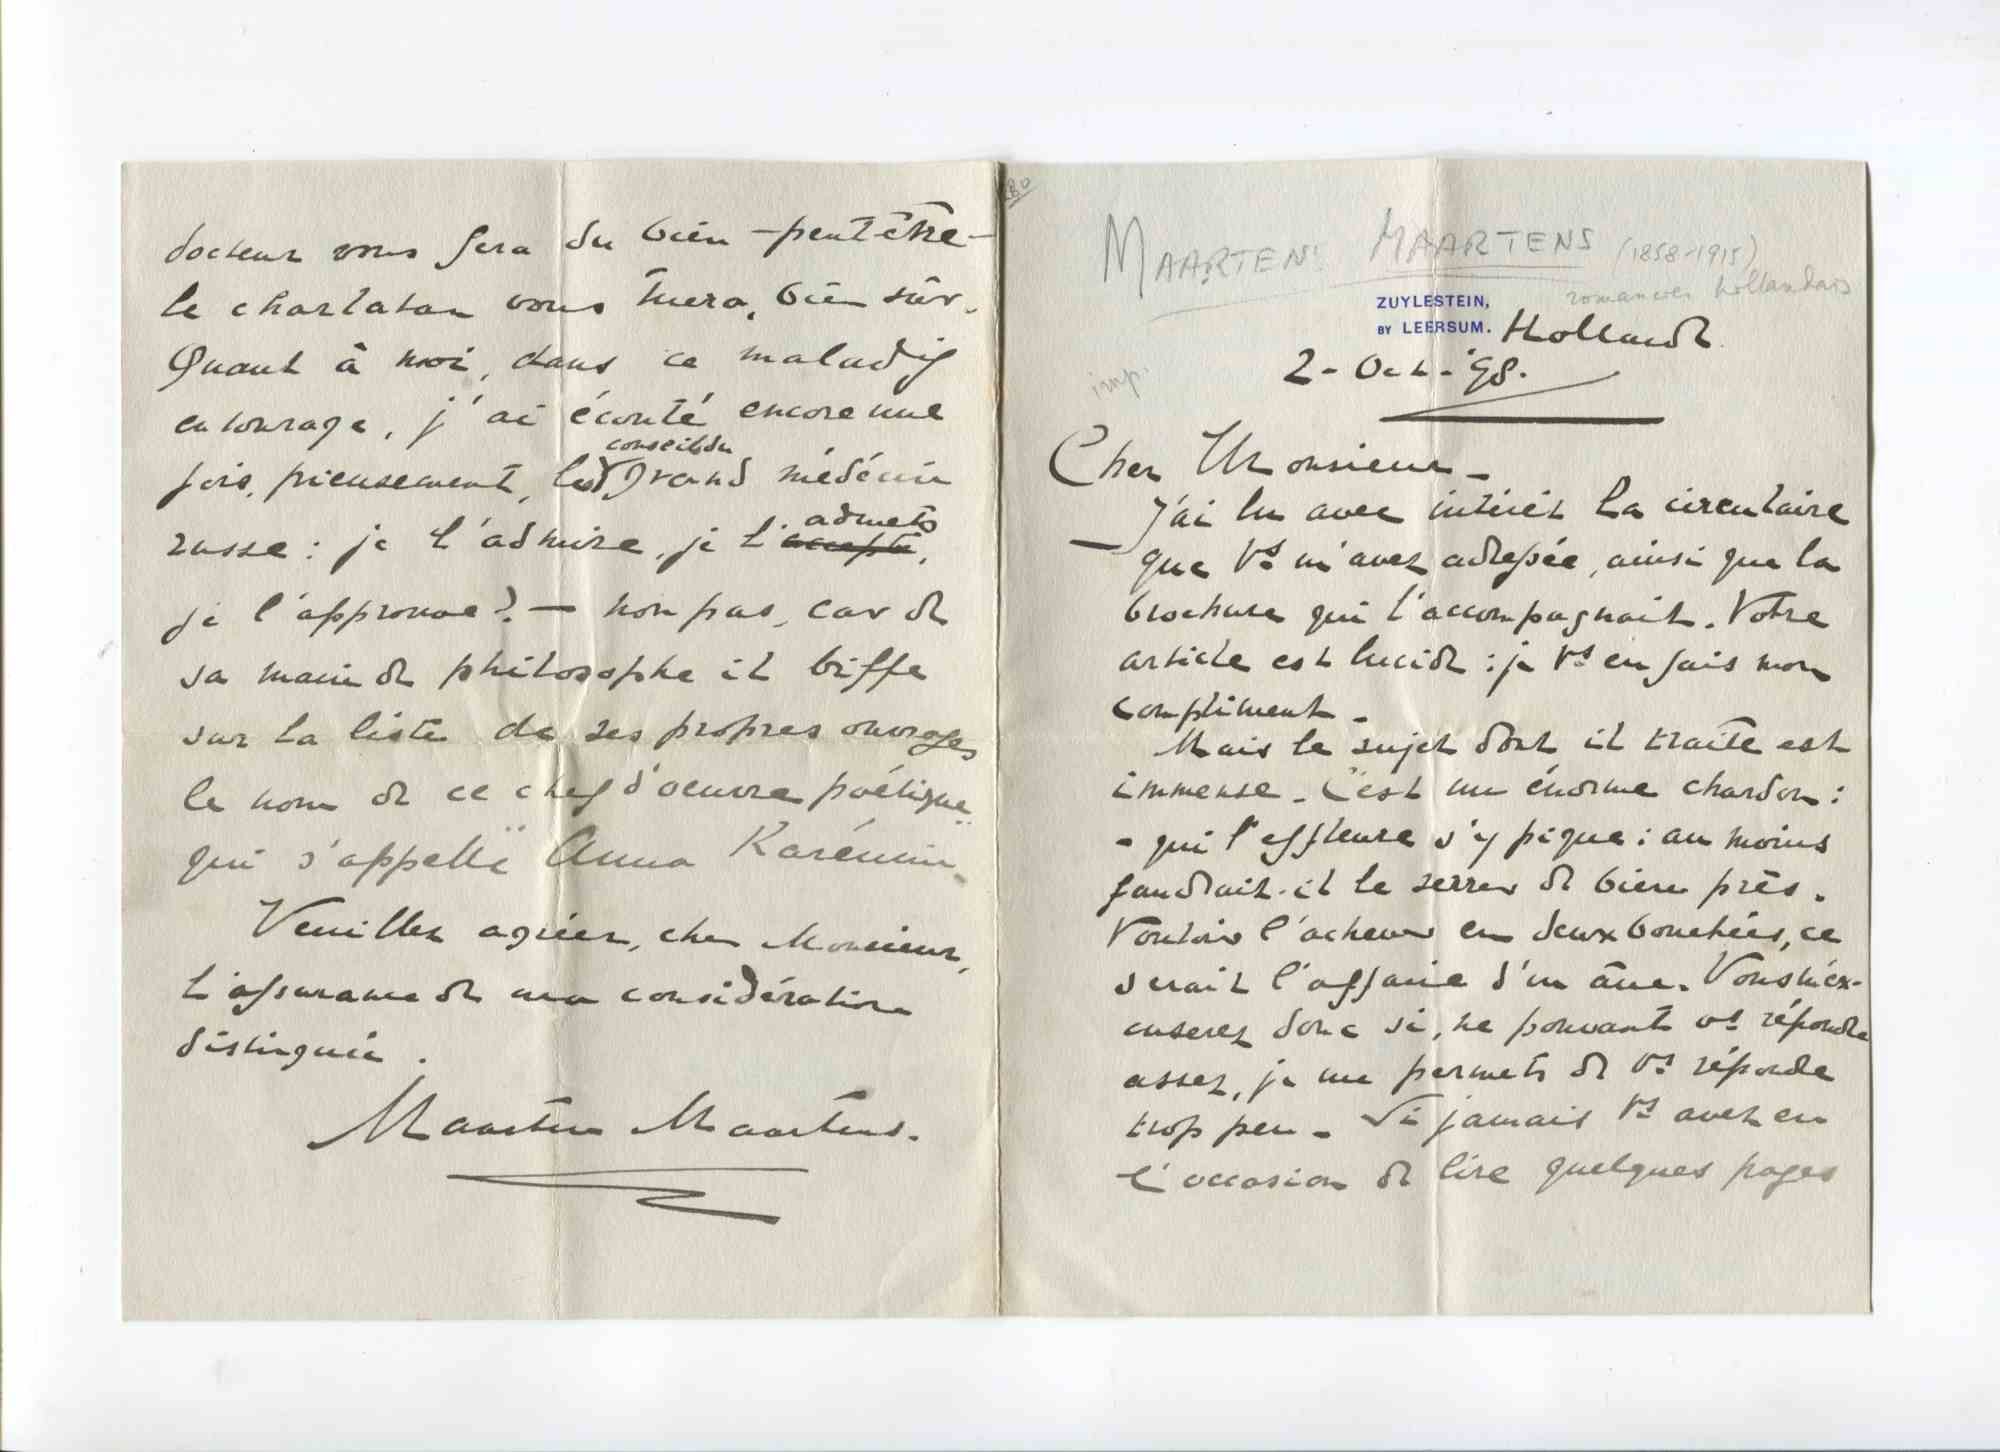 MAARTEN MAARTENS (1858-1915)
romancier hollandais
ZUYLESTEIN,
BY LEERSUM. Holland
2 - Oct - '98.
imp.
Cher Monsieur -
J'ai lu avec intérêt la circulaire
que Vs m'avez adressée, ainsi que la
brochure qui l'accompagnait. Votre
article est lucide : je Vs en fais mon
compliment -
Mais le sujet dont il traite est
immense - C'est un énorme chardon :
- qui l'effleure s'y pique : au moins
faudrait-il le serrer de bien près.
Vouloir l'achever en deux bouchées, ce
serait l'affaire d'un âne. Vous m'ex-
cuserez donc si, ne pouvant vs répondre
assez, je me permets de Vs répondre
trop peu - Si jamais Vs avez eu
l'occasion de lire quelques pages
docteur vous fera du bien - peut être -
le charlatan vous tuera, bien sûr.
Quant à moi, dans ce maladif
entourage, j'ai écouté encore une
fois, pieusement, les conseils du grand médecin
russe : je l'admire, je l'accepte admets,
je l'approuve ? - non pas, car de
sa main de philosophe il biffe
sur la liste de ses propres ouvrages
le nom de ce chef d'oeuvre poétique
qui s'appelle Anna Karénin.
Veuillez agréer, cher Monsieur,
l'assurance de ma considération
distinguée.
Maarten Maartens.